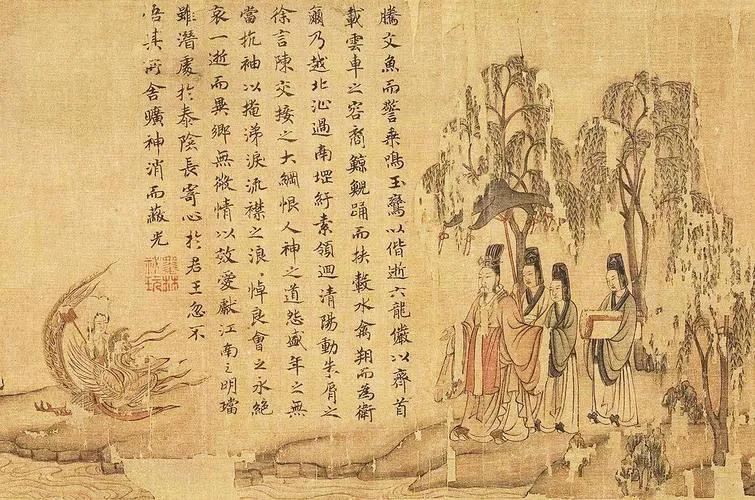 騰文魚而警乗鳴玉鸞以偕逝六龍儼以齊首
載雲車之容裔鯨鯢踊而挾轂水禽翔而為衛
爾乃越北沚過南堽紆素領迴清陽動朱脣之
徐言陳交接之大綱恨人神之道怨盛年之無
當抗袖以掩涕淚流襟之浪、悼良會之永絕
哀一逝而異鄉無微情以效愛獻江南之明璫
雖潛處於泰陰長寄心於君王忽不
悟其所舍曠神消而蔽光